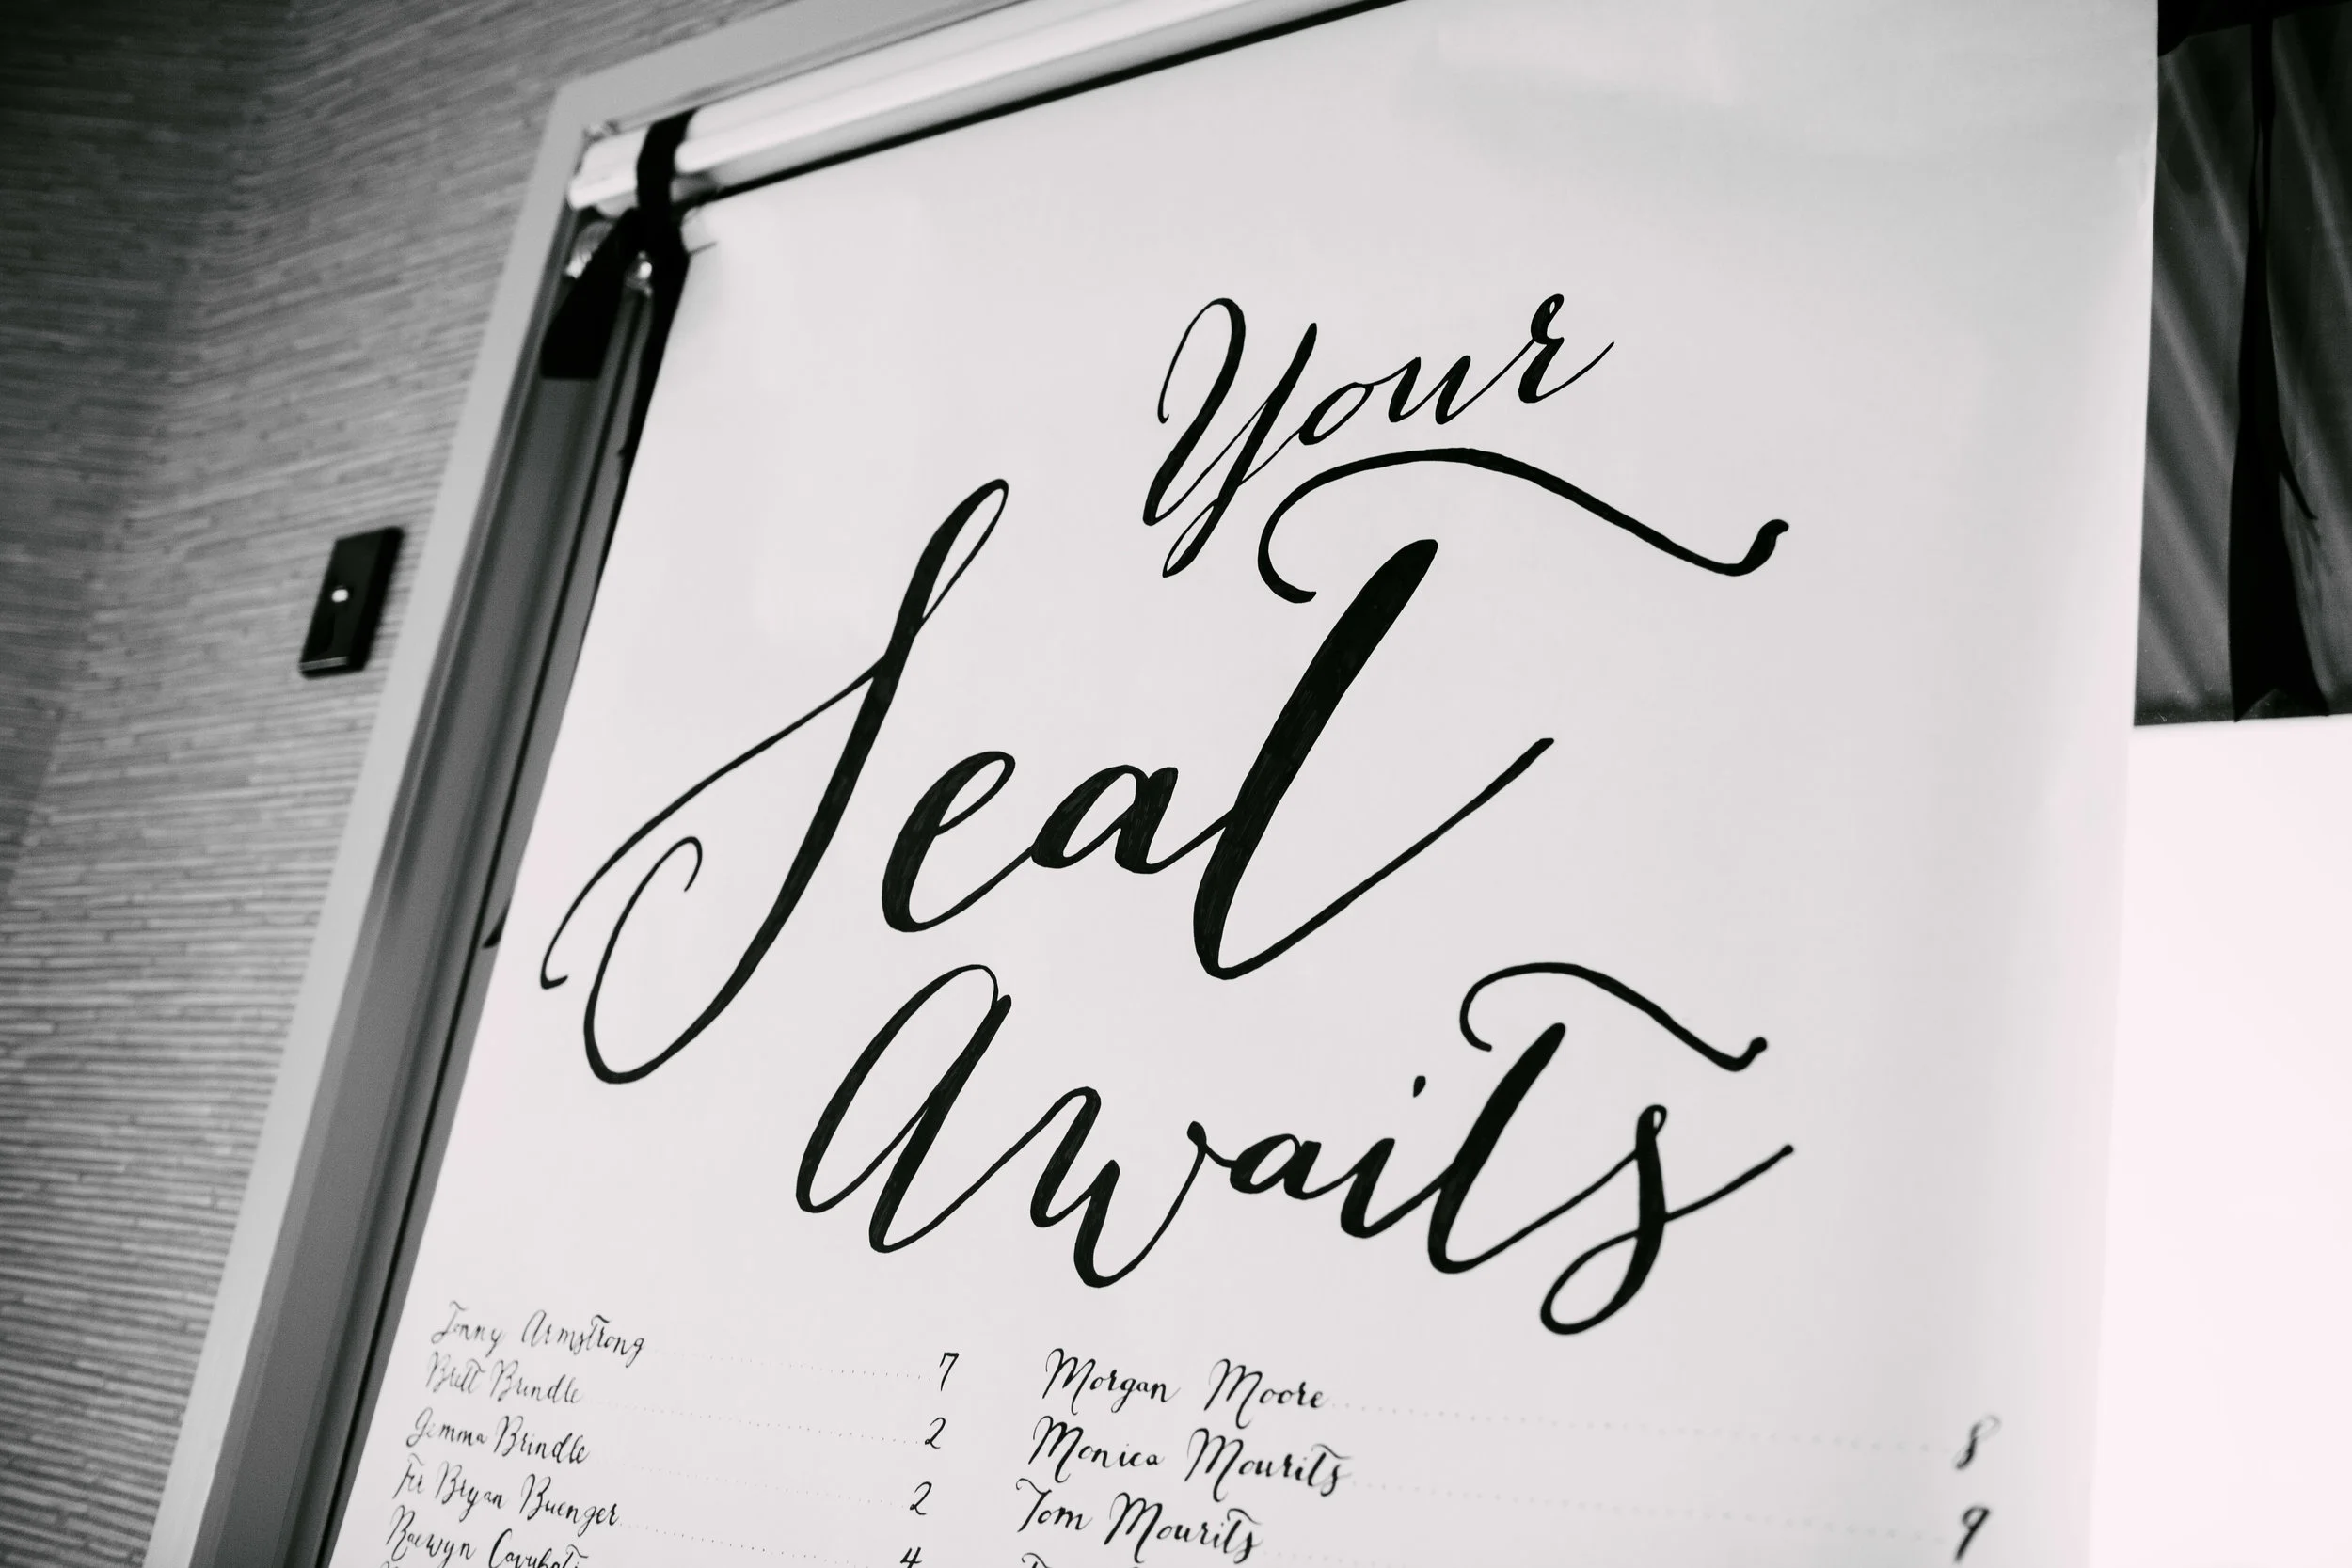 Your
Seat
Awaits
Jonny Armstrong 7
Brett Brindle 2
Gemma Brindle 2
Fr Bryan Buenger 4
Raewyn
Morgan Moore 8
Monica Mourits 9
Tom Mourits